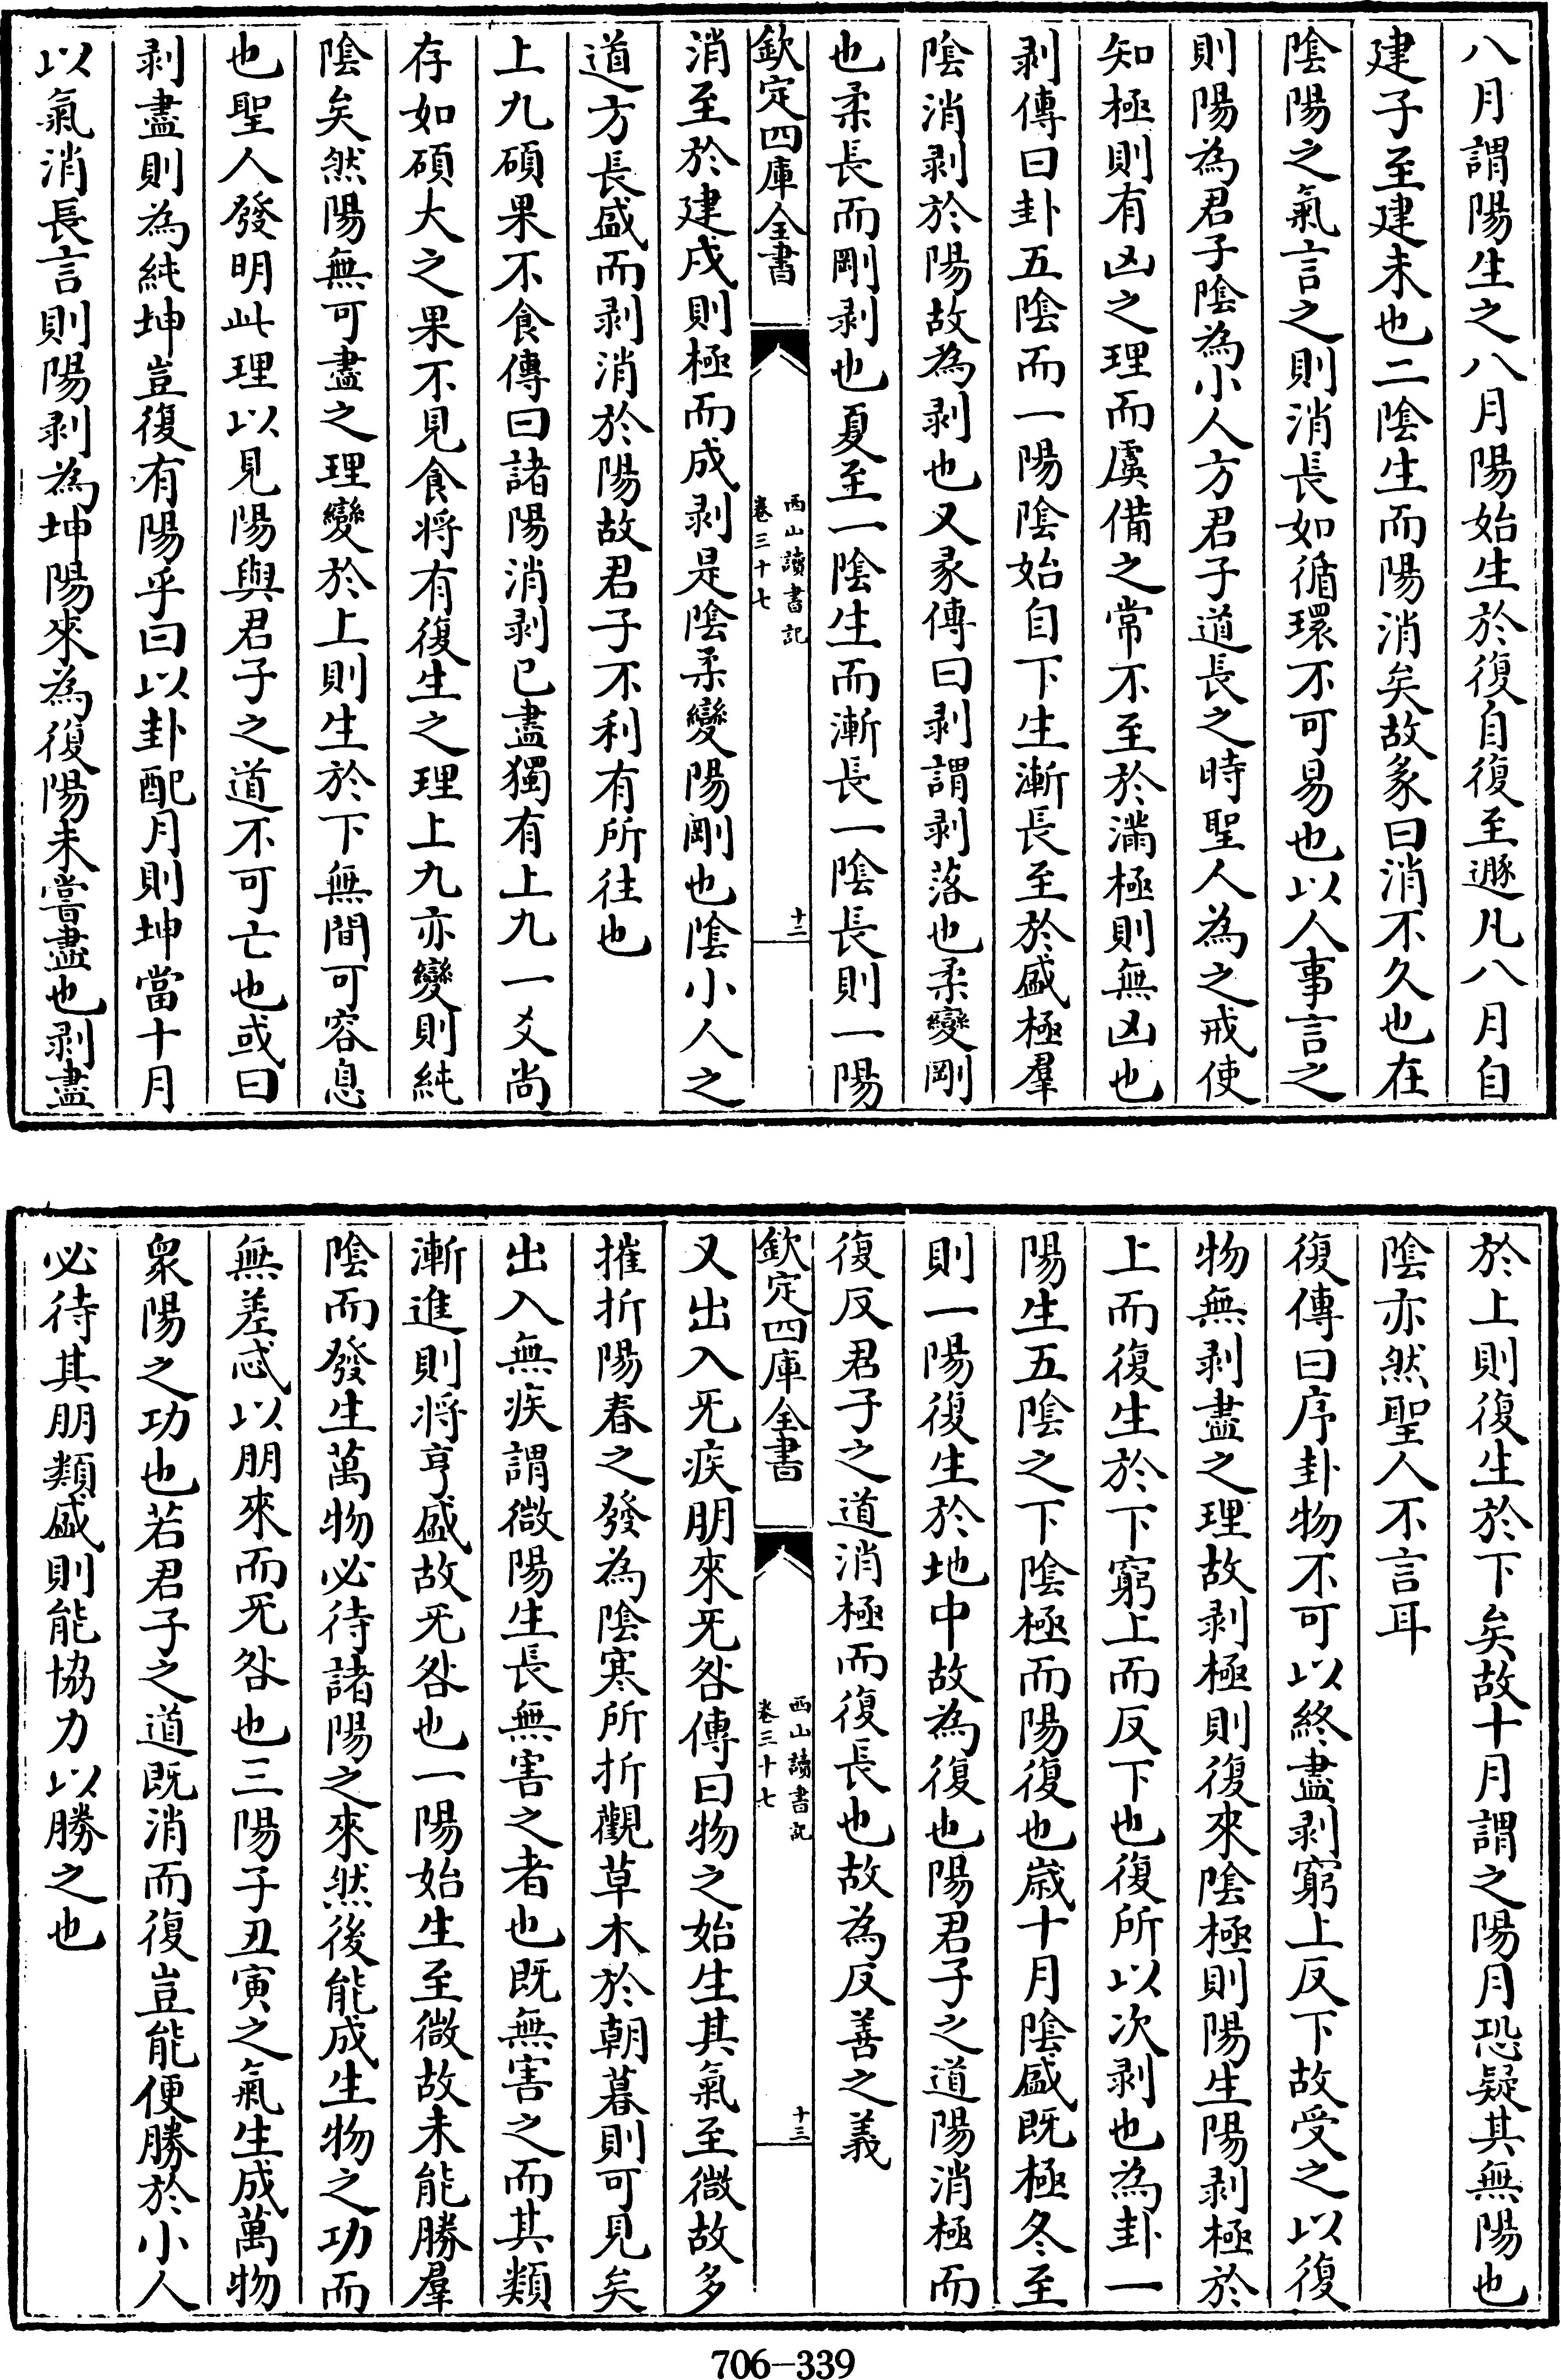 八月謂陽生之八月陽始生於復自復至遯凡八月自
建子至建未也二陰生而陽消矣故彖曰消不久也在
陰陽之氣言之則消長如循環不可易也以人事言之
則陽為君子陰為小人方君子道長之時聖人為之戒使
知極則有凶之理而虞備之常不至於滿極則無凶也
剥傳曰卦五陰而一陽陰始自下生漸長至於盛極羣
陰消剥於陽故為剥也又彖傳曰剥謂剥落也柔變剛
也柔長而剛剥也夏至一陰生而漸長一陰長則一陽
欽定四庫全書
西山讀書記
卷三十七
十二
消至於建戌則極而成剥是陰柔變陽剛也陰小人之
道方長盛而剥消於陽故君子不利有所往也
上九碩果不食傳曰諸陽消剥已盡獨有上九一爻尚
存如碩大之果不見食將有復生之理上九亦變則純
陰矣然陽無可盡之理變於上則生於下無間可容息
也聖人發明此理以見陽與君子之道不可亡也或曰
剥盡則為純坤豈復有陽乎曰以卦配月則坤當十月
以氣消長言則陽剥為坤陽來為復陽未嘗盡也剥盡
於上則復生於下矣故十月謂之陽月恐疑其無陽也
陰亦然聖人不言耳
復傳曰序卦物不可以終盡剥窮上反下故受之以復
物無剥盡之理故剥極則復來陰極則陽生陽剥極於
上而復生於下窮上而反下也復所以次剥也為卦一
陽生五陰之下陰極而陽復也歲十月陰盛既極冬至
則一陽復生於地中故為復也陽君子之道陽消極而
復反君子之道消極而復長也故為反善之義
欽定四庫全書
西山讀書記
卷三十七
十三
又出入无疾朋來无咎傳曰物之始生其氣至微故多
摧折陽春之發為陰寒所折觀草木於朝暮則可見矣
出入無疾謂微陽生長無害之者也既無害之而其類
漸進則將亨盛故无咎也一陽始生至微故未能勝羣
陰而發生萬物必待諸陽之來然後能成生物之功而
無差忒以朋來而无咎也三陽子丑寅之氣生成萬物
衆陽之功也若君子之道既消而復豈能便勝於小人
必待其朋類盛則能協力以勝之也
706-339